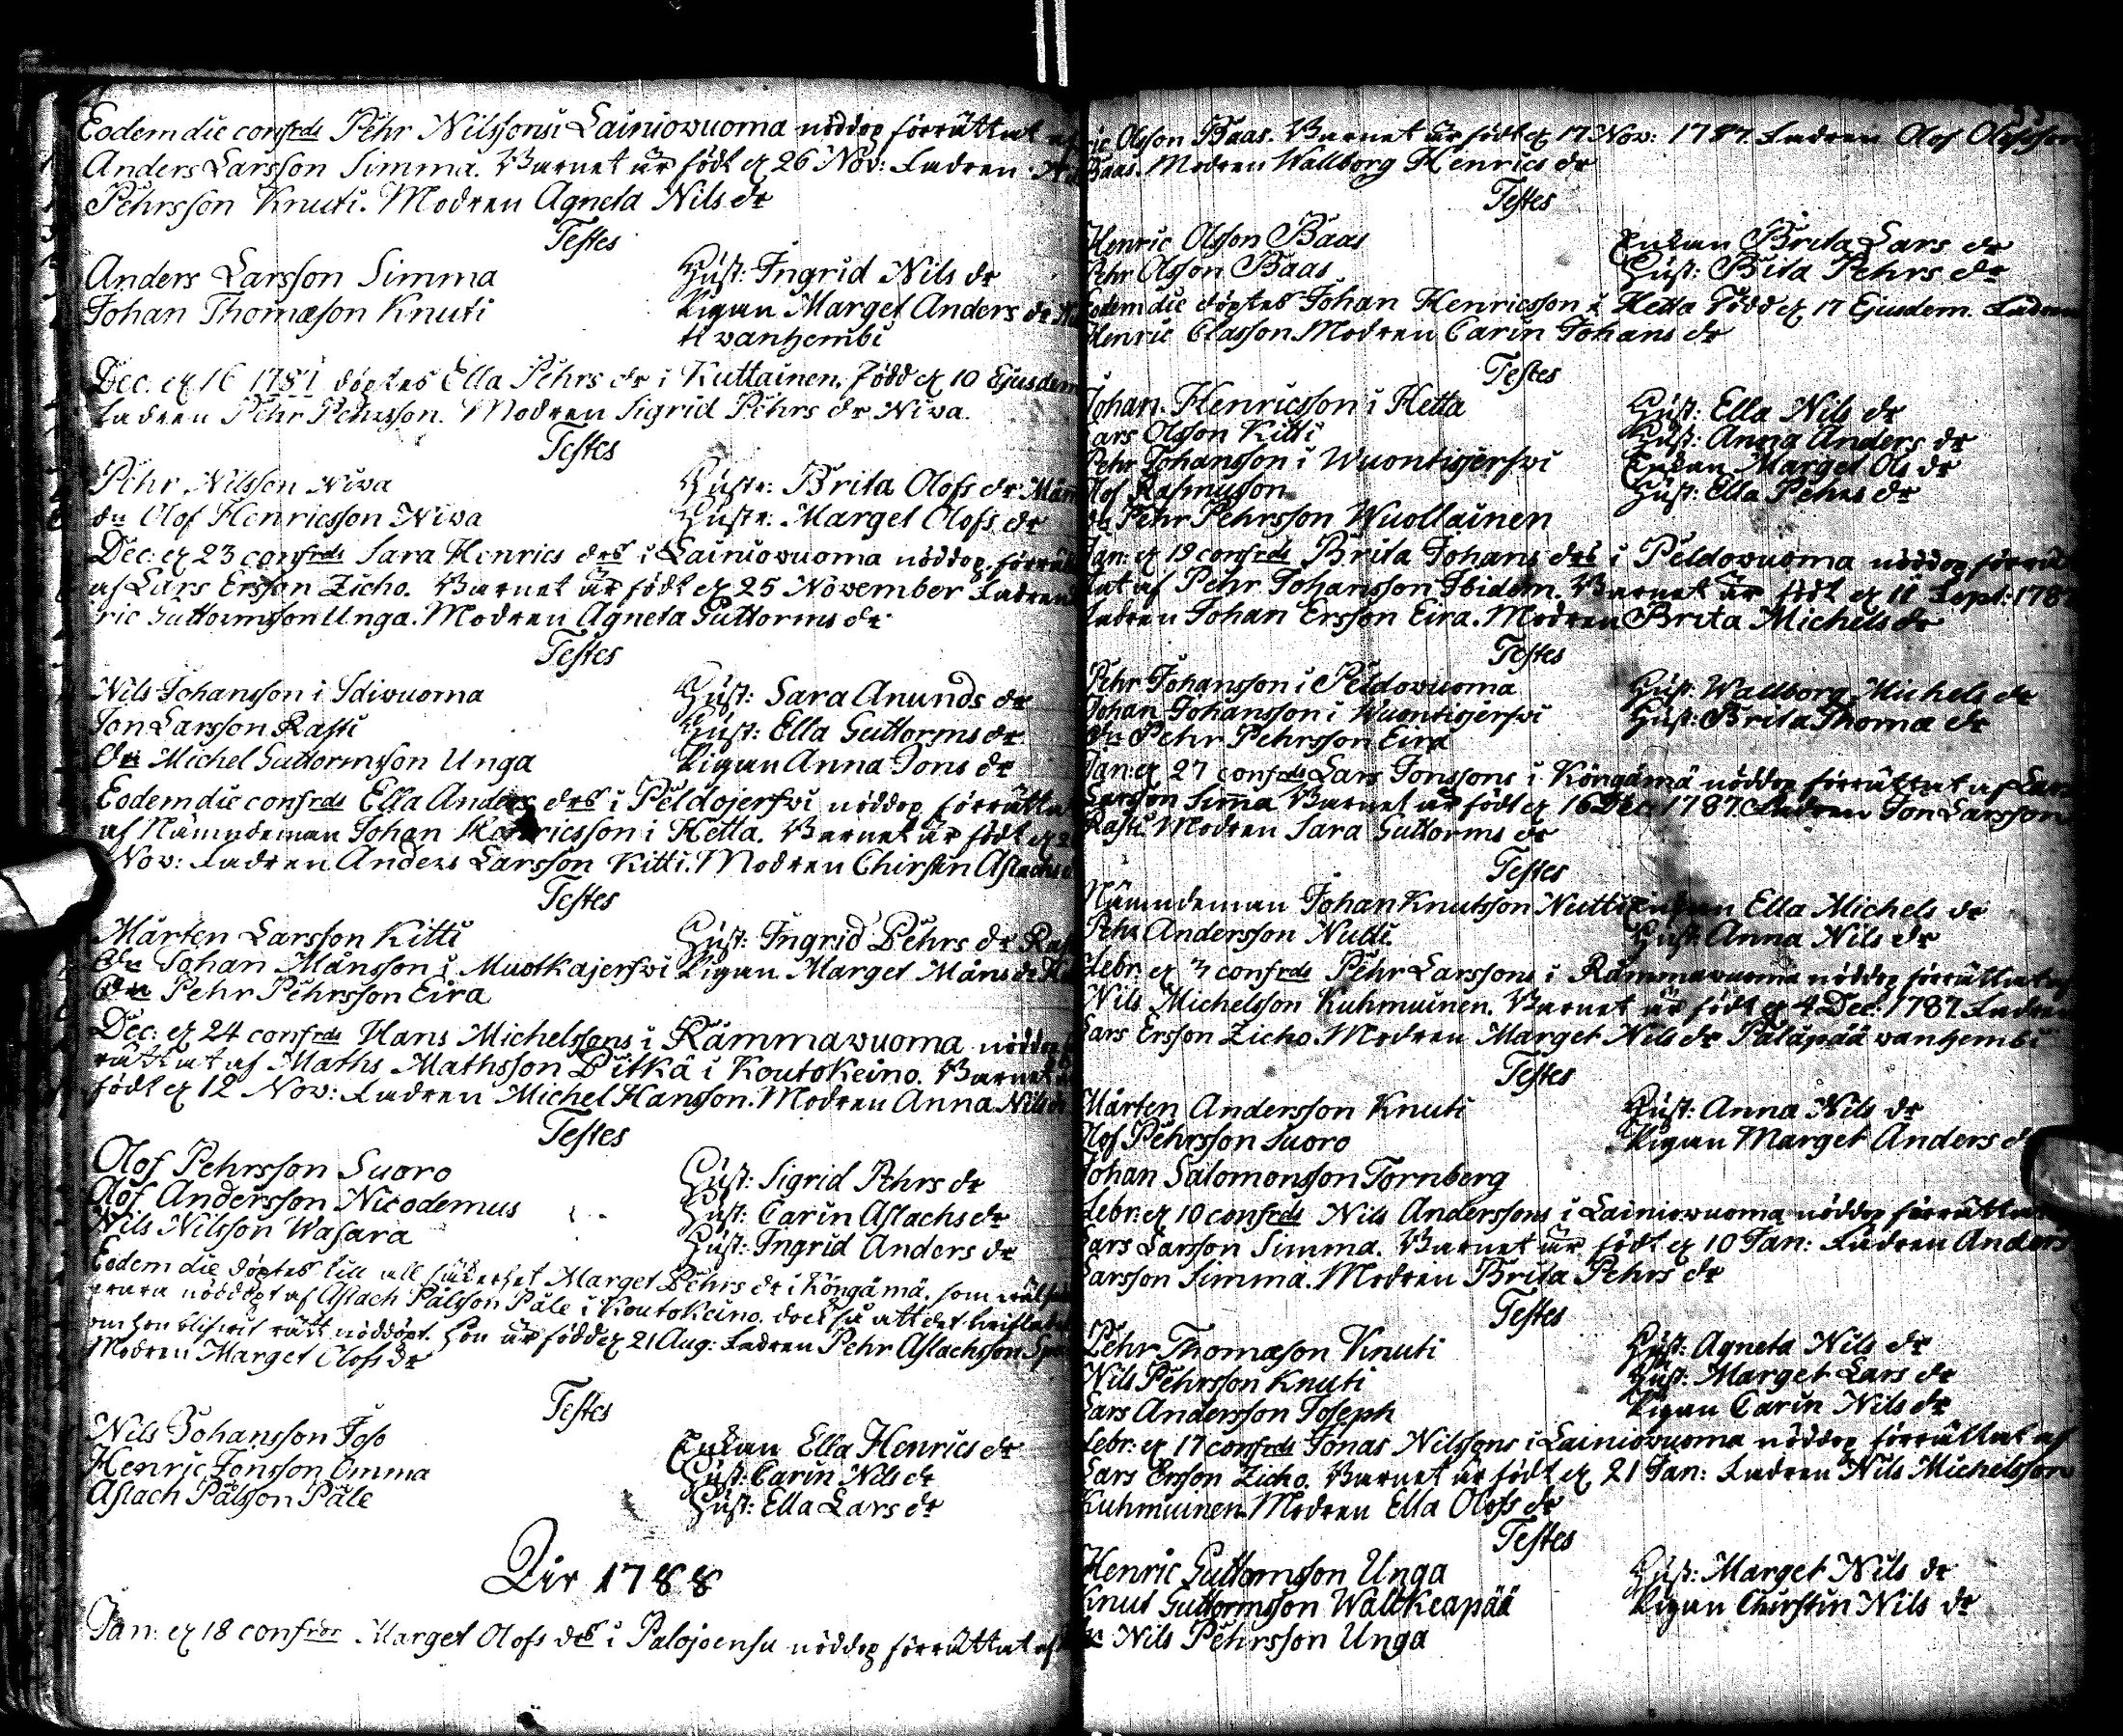 Eodem die confrds Pehr Nilssons i Lainiovuoma nöddop förrättat af
Anders Larsson Simma. Barnet är födt d. 26 Nov: Fadren
Pehrsson Knuti. Modren Agneta Nils dr
Testes
Anders Larsson Simma Hust: Ingrid Nils dr
Johan Thomæson Knuti Pigan Marget Anders dr
vanhembi
Dec: d. 16 1787 döptes Ella Pehrs dr i Kuttainen, född d. 10 Ejusdem
Fadren Pehr Pehrsson. Modren Sigrid Pehrs dr Niva.
Testes
Pehr Nilsson Niva Hustr: Brita Olofs dr
dn Olof Henricsson Niva Hustr: Marget Olofs dr
Dec: d. 23 confrds Sara Henrics drs i Lainiovuoma nöddop. förrät
af Lars Ersson Zicho. Barnet är födt d. 25 November Fadren
ric Guttormsson Unga. Modren Agneta Guttorms dr
Testes
Nils Johansson i Idivuoma Hust: Sara Anunds dr
Jon Larsson Rasti Hust: Ella Guttorms dr
Dn Michel Guttormsson Unga Pigan Anna Jons dr
Eodem die confrds Ella Anders drs i Peldojerfvi nöddop förrätta
af Nämndeman Johan Henricsson i Hetta. Barnet är födt d.
Nov: Fadren Anders Larsson Kitti. Modren Chirstin Aslachs
Testes
Mårten Larsson Kitti Hust: Ingrid Pehrs dr
Dn Johan Månsson i Muotkajerfvi Pigan Marget Måns dr
Dn Pehr Pehrsson Eira
Dec: d. 24 confrds Hans Michelssons i Rämmavuoma nöddop
rättat af Maths Mathsson Pitkä i Koutokeino. Barnet
födt d. 12 Nov: Fadren Michel Hansson. Modren Anna Nils dr
Testes
Olof Pehrsson Suoro Hust: Sigrid Pehrs dr
Olof Andersson Nicodemus Hust: Carin Aslachs dr
Nils Nilsson Wasara Hust: Ingrid Anders dr
Eodem die döptes till all säkerhet Marget Pehrs dr i Köngämä, som
vara nöddöpt af Aslach Pålsson Påle i Koutokeino. dock så att det
om hon blifvit rätt nöddöpt. Hon är född d. 21 Aug: Fadren Pehr Aslachsson
Modren Marget Olofs dr
Testes
Nils Johansson Joso Enkan Ella Henrics dr
Henric Jonsson Omma Hust: Carin Nils dr
Aslach Pålsson Påle Hust: Ella Lars dr
1788
Jan: d. 18 confrdr Marget Olofs drs i Palojoensu nöddop förrättat af
ric Olsson Baas. Barnet är födt d. 17 Nov: 1787. Fadren Olof Olofsson
Baas. Modren Wallborg Henrics dr
Testes
Henric Olsson Baas Enkan Brita Lars dr
Pehr Olsson Baas Hust: Brita Pehrs dr
Eodem die döptes Johan Henricsson i Hetta född d. 17 Ejusdem. Fadren
Henric Classon. Modren Carin Johans dr
Testes
Johan Henricsson i Hetta Hust: Ella Nils dr
Lars Olsson Kitti Hust: Anna Anders dr
Pehr Johansson i Wuontisjerfvi Enkan Marget Ols dr
Olof Rasmusson Hust: Ella Pehrs dr
dn Pehr Pehrsson Wuollainen
Jan: d. 19 confrds Brita Johans drs i Peldovuoma nöddop förrät
tat af Pehr Johansson Ibidem. Barnet är födt d. 11 Sept: 1787
Fadren Johan Ersson Eira. Modren Brita Michels dr
Testes
Pehr Johansson i Peldovuoma Hust: Wallborg Michels dr
Johan Johansson i Wuontisjerfvi Hust: Brita Thomæ dr
Dn Pehr Pehrsson Eira
Jan: d. 27 confrds Lars Jonssons i Köngämä nöddop förrättat af Lars
Larsson Simma Barnet är födt d. 16 Dec: 1787. Fadren Jon Larsson
Rasti. Modren Sara Guttorms dr
Testes
Nämndeman Johan Knutsson Nutti Enkan Ella Michels dr
Pehr Andersson Nutti Hust: Anna Nils dr
Febr: d. confrds Pehr Larssons i Rämmavuoma nöddop förrättat af
Nils Michelsson Kuhmuinen. Barnet är födt d. 4 Dec: 1787. Fadren
Lars Ersson Zicho. Modren Marget Nils dr Palapää vanhembi
Testes
Mårten Andersson Knuti Hust: Anna Nils dr
Olof Pehrsson Suoro Pigan Marget Anders dr
Johan Salomonsson Tornberg
Febr: d. 10 confrds Nils Anderssons i Lainiovuoma nöddop förrättat
Lars Larsson Simma. Barnet är födt d. 10 Jan: Fadren Anders
Larsson Simma. Modren Brita Pehrs dr
Testes
Pehr Thomæson Knuti Hust: Agneta Nils dr
Nils Pehrsson Knuti Hust: Marget Lars dr
Lars Andersson Joseph Pigan Carin Nils dr
Febr: d. 17 confrds Jonas Nilssons i Lainiovuoma nöddop förrättat af
Lars Ersson Zicho. Barnet är födt d. 21 Jan: Fadren Nils Michelsson
Kuhmuinen. Modren Ella Olofs dr
Testes
Henric Guttormsson Unga Hust: Marget Nils dr
Knut Guttormsson Walckeapää Pigan Chirstin Nils dr
dn Nils Pehrsson Unga